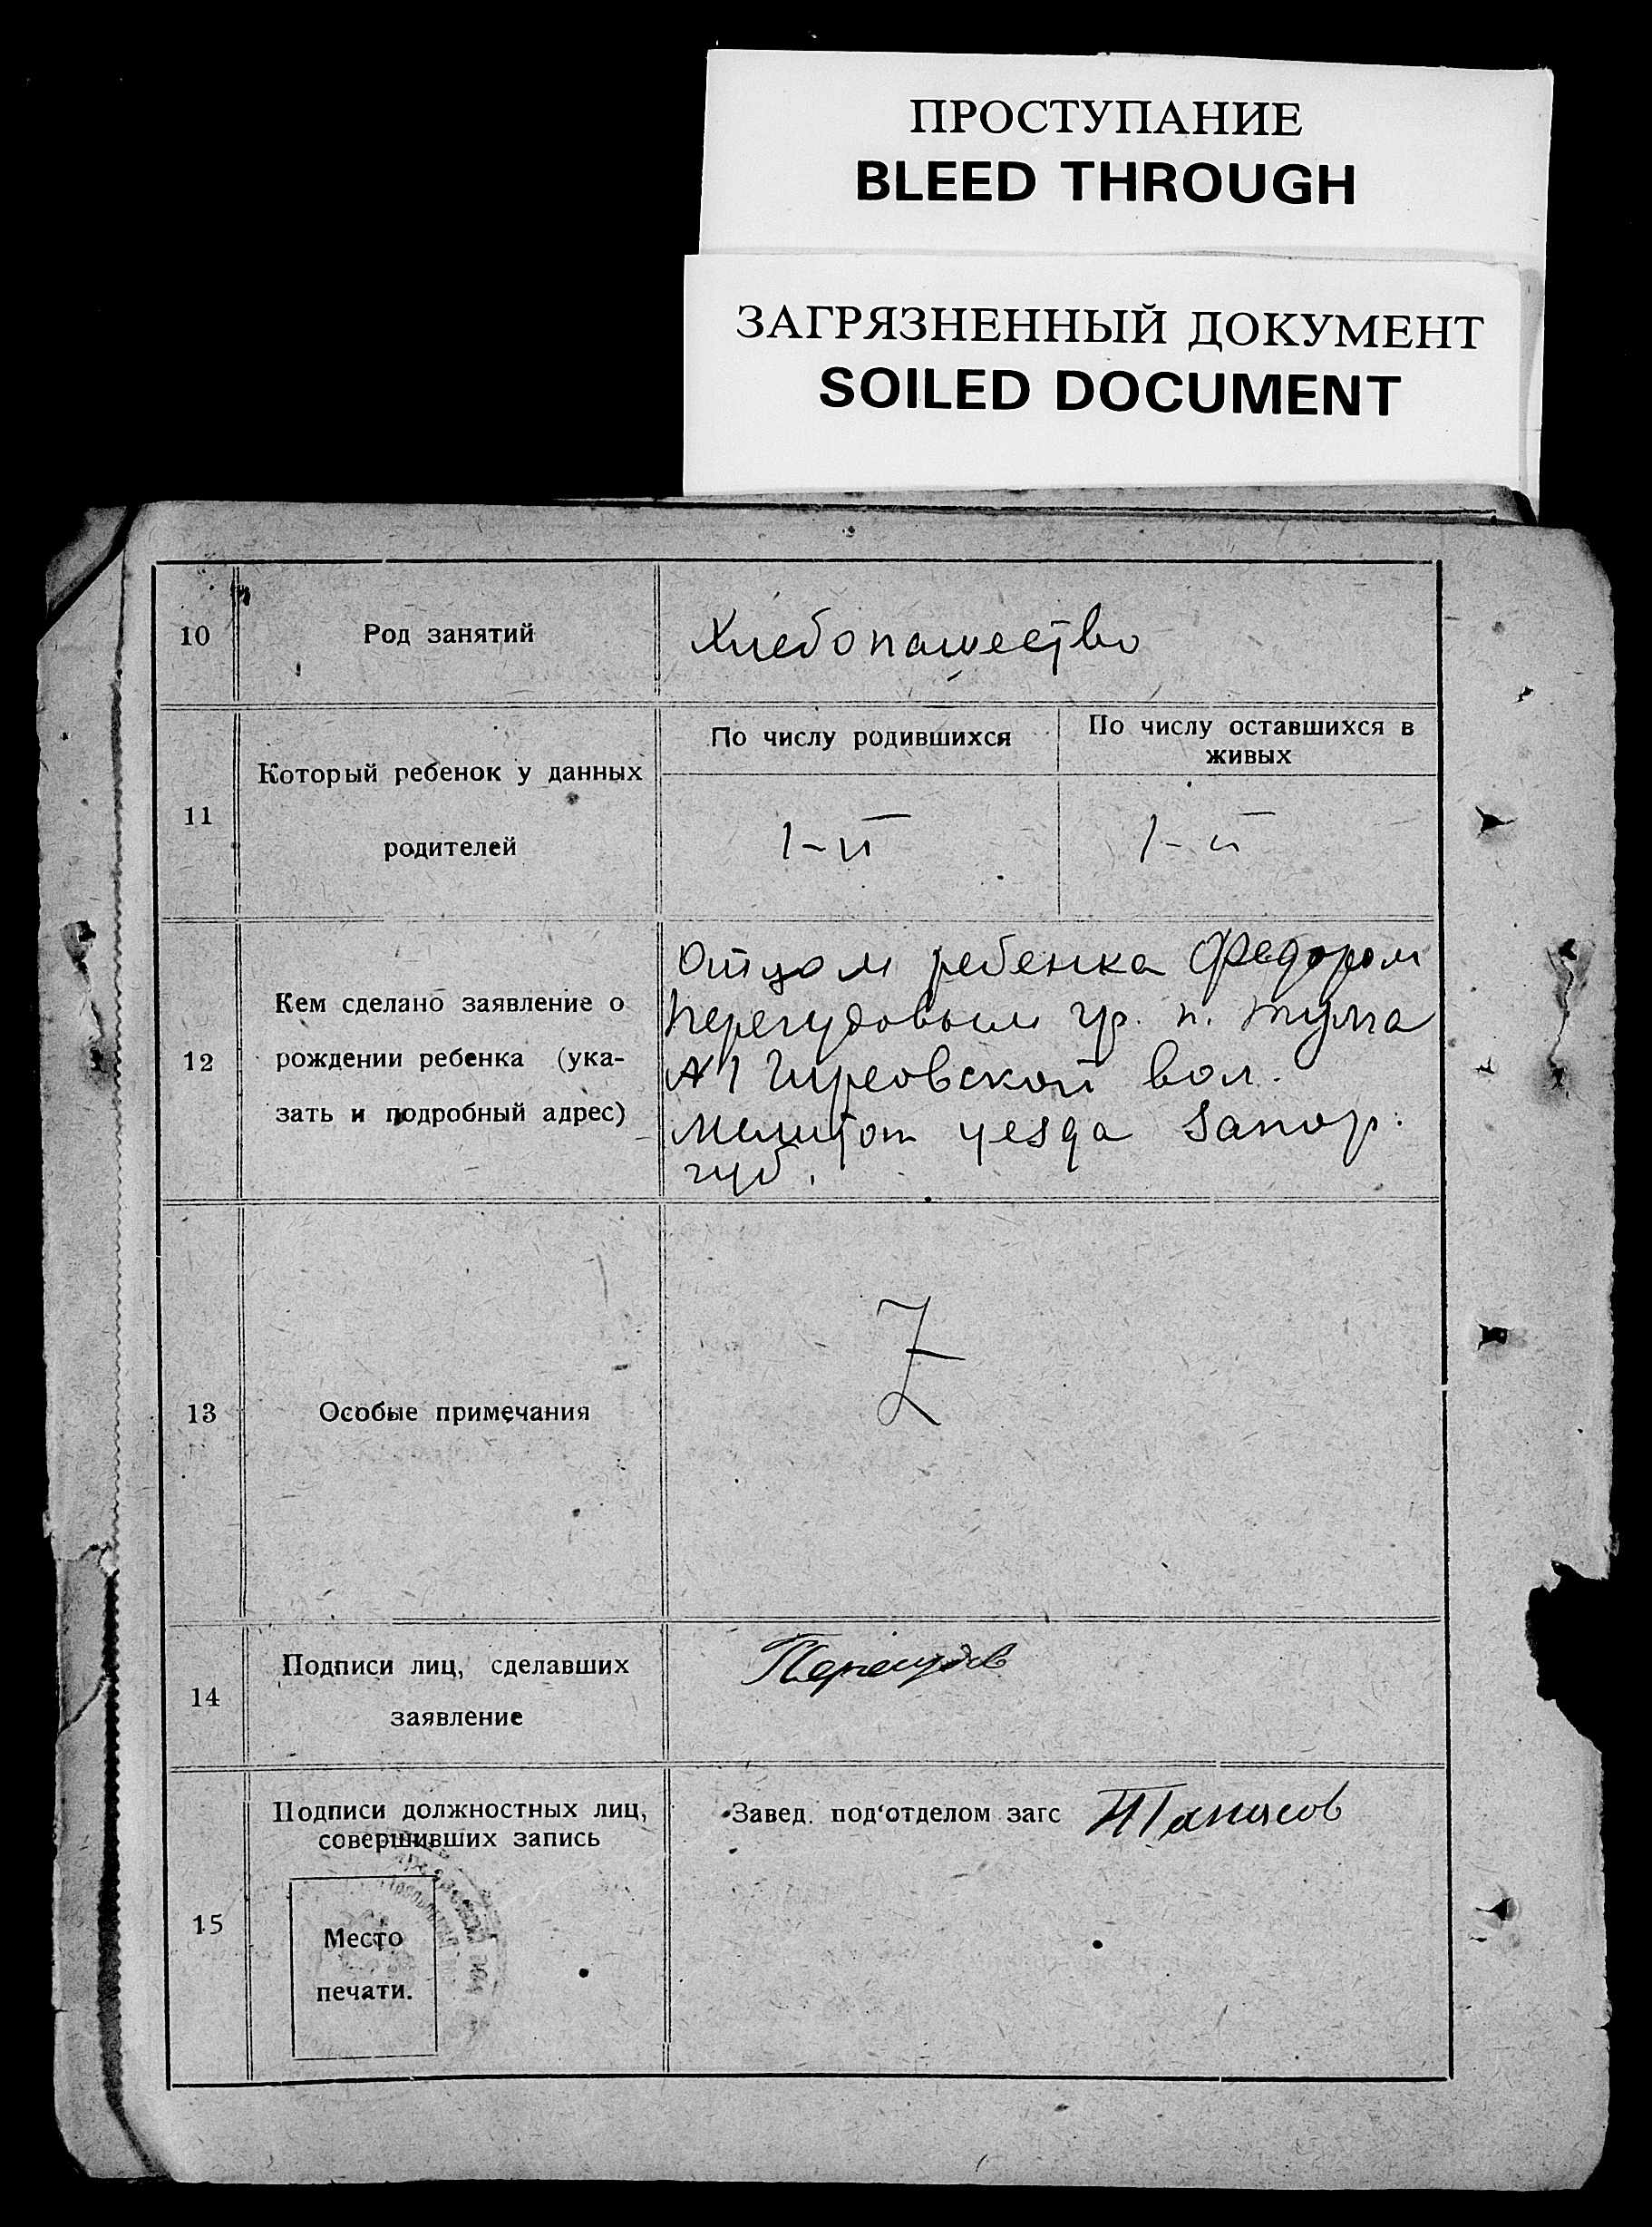 ПРОСТУПАНИЕ
BLEED THROUGH
ЗАГРЯЗНЕННЫЙ ДОКУМЕНТ
SOILED DOCUMENT
10
Род занятий
Хлебопашество
11
Который ребенок у данных
родителей
По числу родившихся
По числу оставшихся в
живых
1-й
1-й
12
Кем сделано заявление о
рождении ребенка (ука-
зать и подробный адрес)
Отцом ребенка Федором
Перегудовым гр. п. Тулга
№1 Гиреовской вол.
Мелитоп уезда Запор.
губ.
13
Особые примечания
Z
14
Подписи лиц, сделавших
заявление
Перегудов
15
Подписи должностных лиц,
совершивших запись
Место
печати.
Завед. под'отделом загс